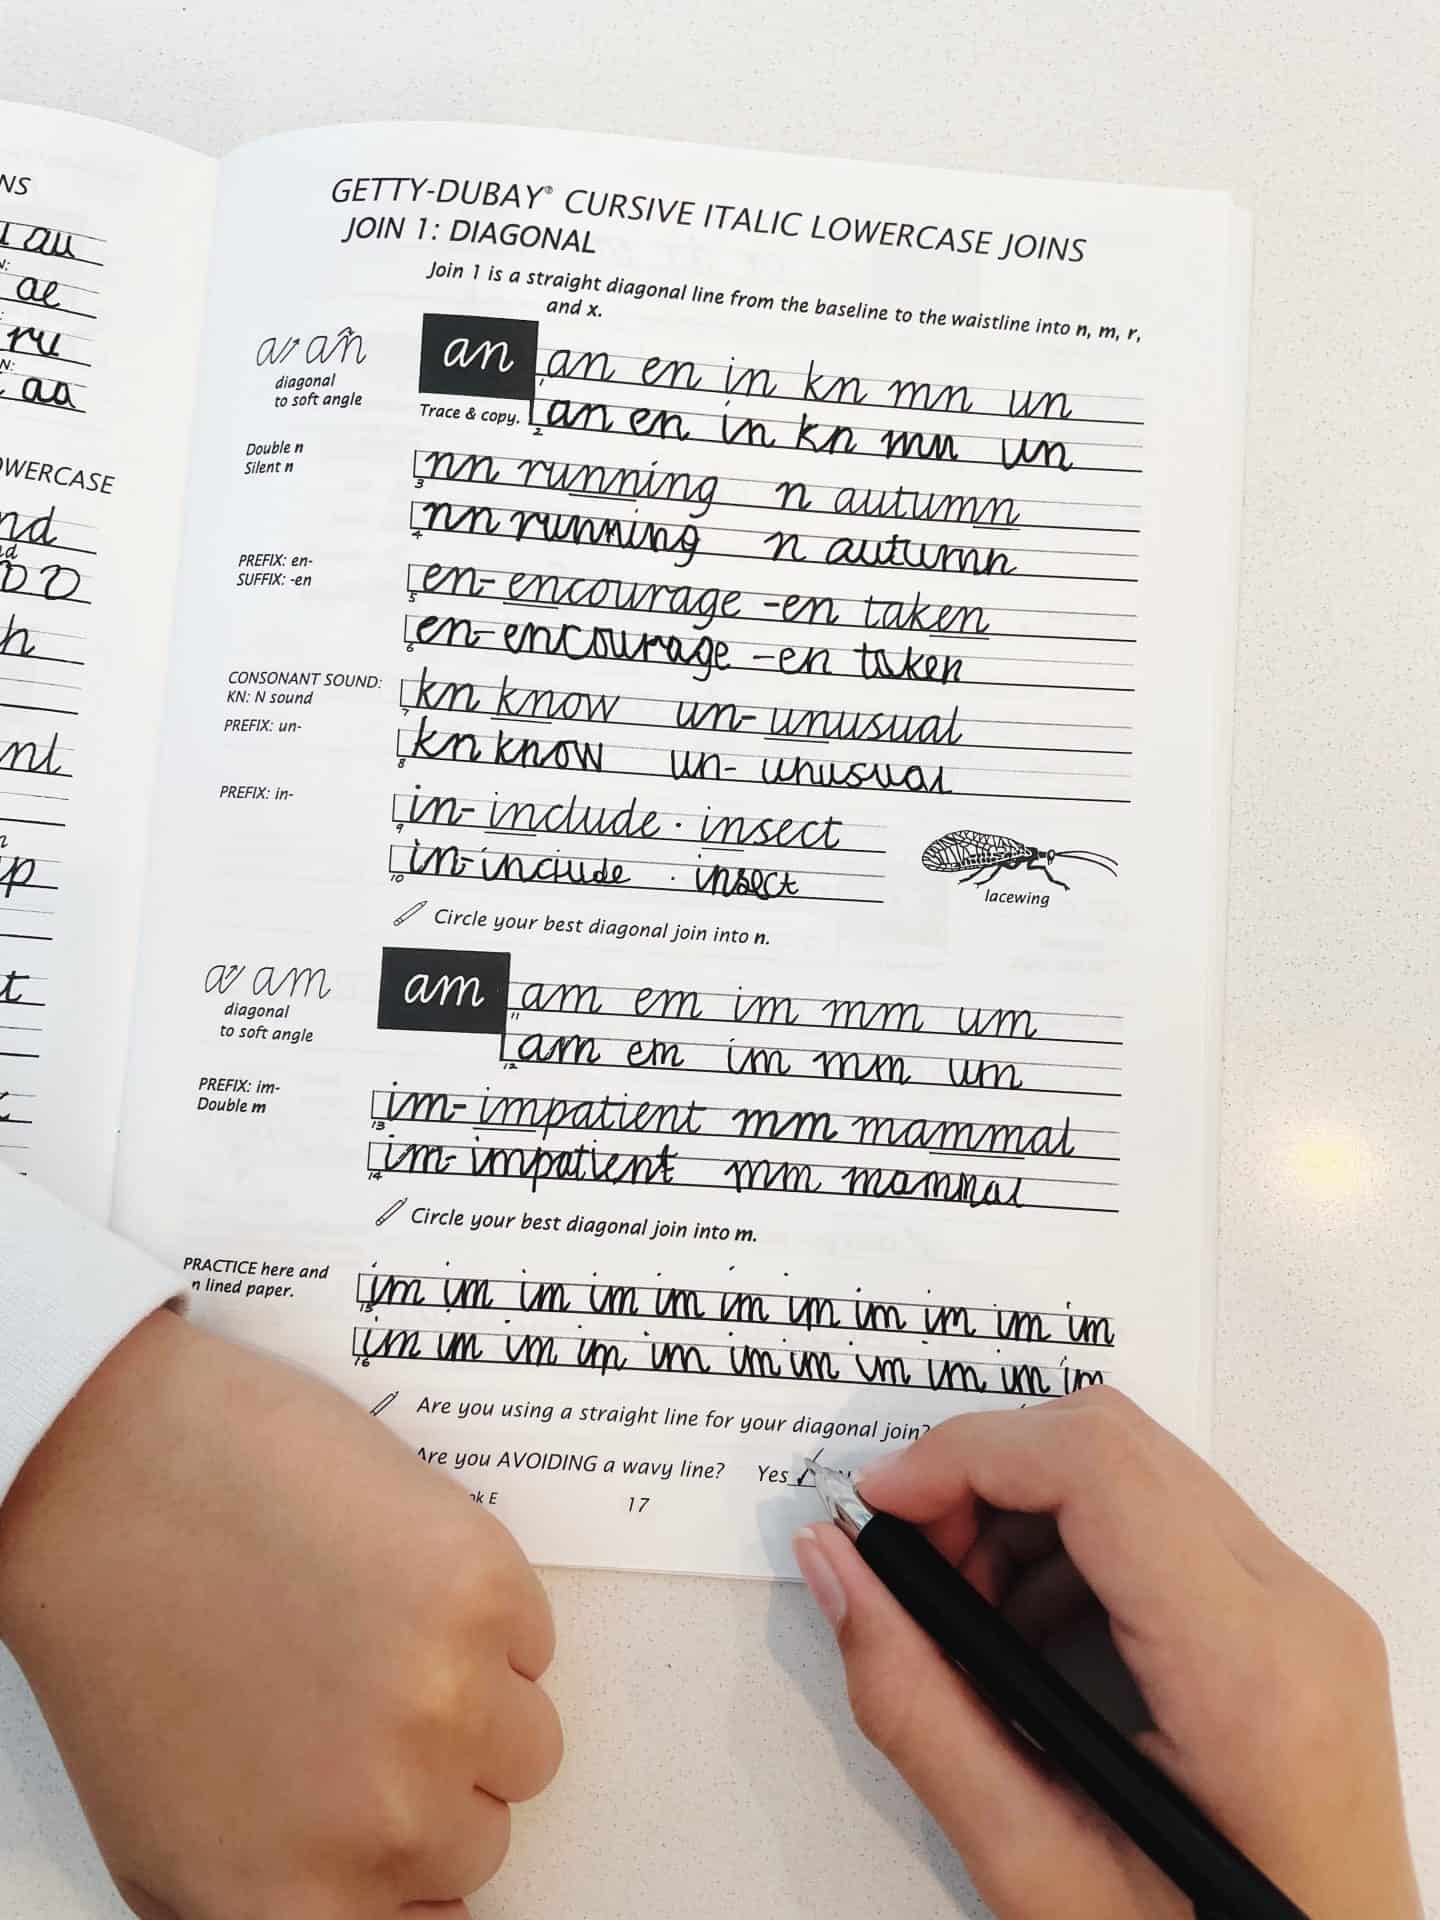 NS
au
ae
ru
aa
OWERCASE
nd
h
nt
p
t
GETTY-DUBAY® CURSIVE ITALIC LOWERCASE JOINS
JOIN 1: DIAGONAL
Join 1 is a straight diagonal line from the baseline to the waistline into n, m, r,
and x.
a an
diagonal
to soft angle
an
1 an en in kn mn un
Trace & copy.
2 an en in kn mn un
Double n
Silent n
3 nn running n autumn
4 nn running n autumn
PREFIX: en-
SUFFIX: -en
5 en- encourage -en taken
6 en- encourage -en taken
CONSONANT SOUND:
KN: N sound
7 kn know un- unusual
PREFIX: un-
8 kn know un- unusual
PREFIX: in-
9 in- include · insect
10 in- include · insect
lacewing
Circle your best diagonal join into n.
a am
diagonal
to soft angle
am
11 am em im mm um
12 am em im mm um
PREFIX: im-
Double m
13 im- impatient mm mammal
14 im- impatient mm mammal
Circle your best diagonal join into m.
PRACTICE here and
n lined paper.
15 im im im im im im im im im im im
16 im im im im im im im im im im im
Are you using a straight line for your diagonal join?
Are you AVOIDING a wavy line? Yes ✓
ok E 17